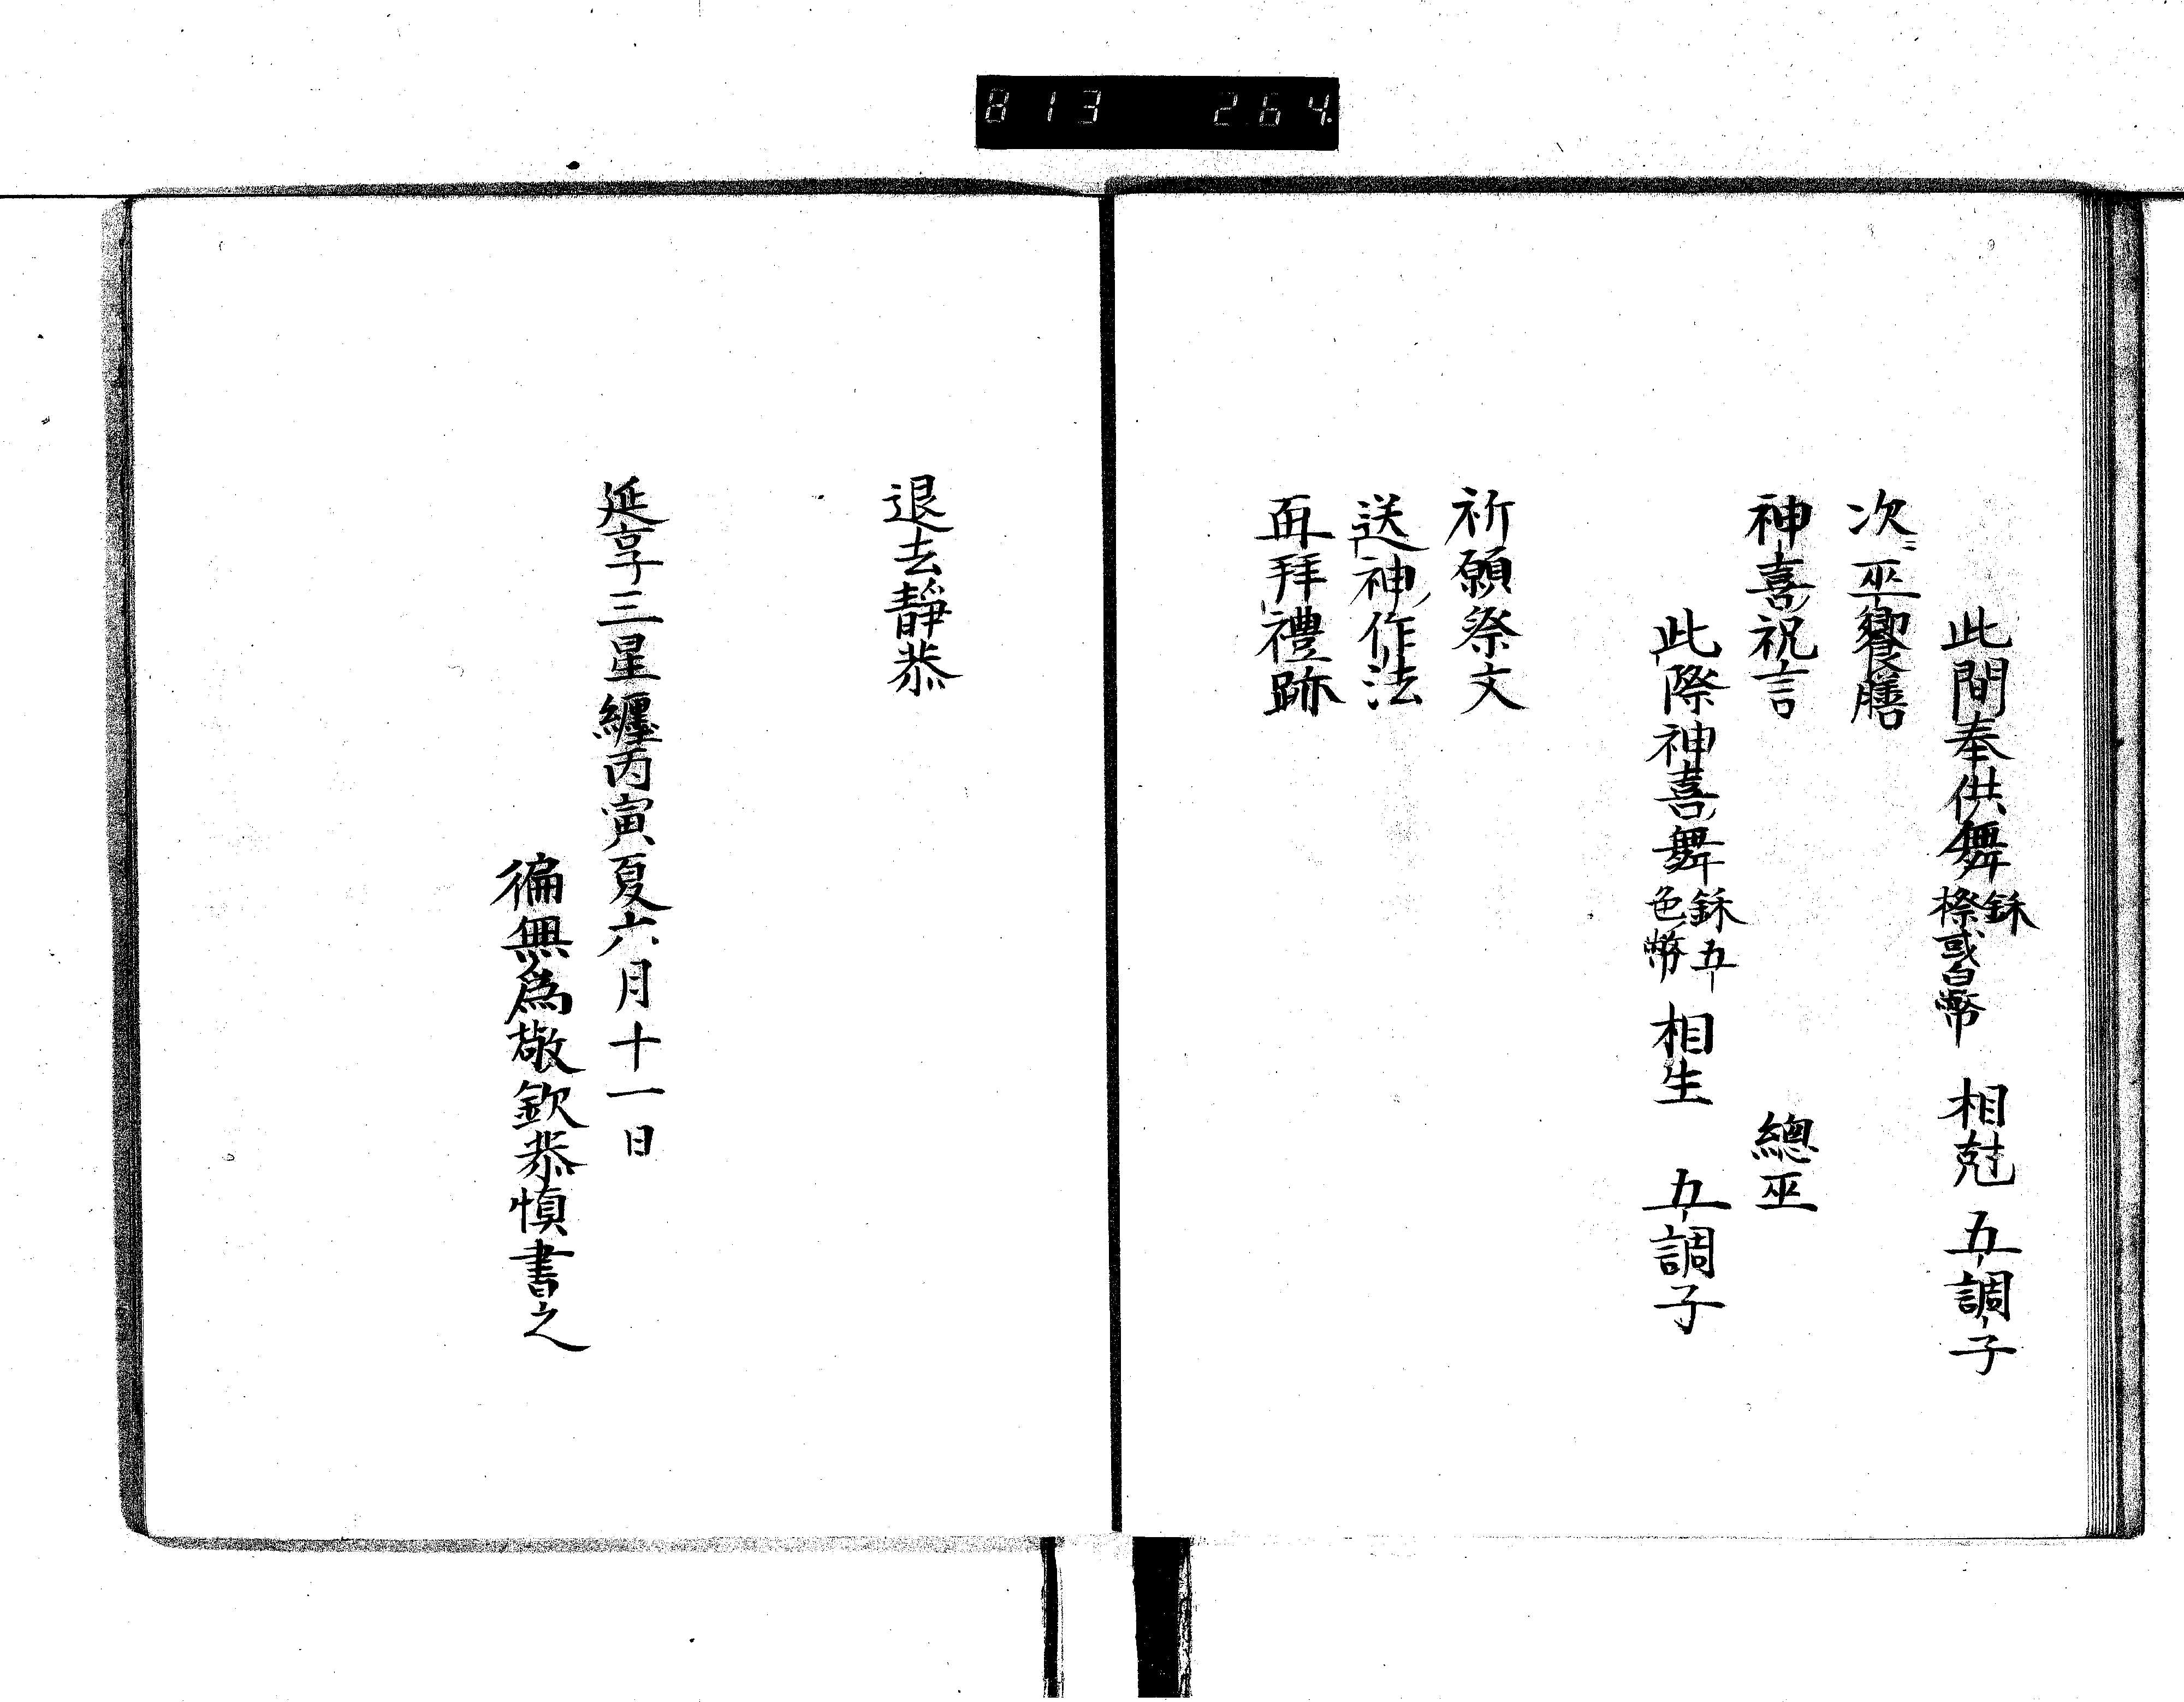 813 264
此間奉供舞 鉌榇或白幣 相尅 五調子
次ニ巫饗膳
神喜祝言 總巫
此際神喜舞 鉌五色幣 相生 五調子
祈願祭文
送神作法
再拜禮跡
退去靜恭
延享三星纏丙寅夏六月十一日
徧無爲敬欽恭愼書之